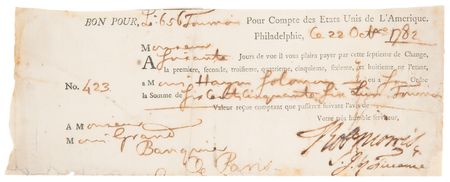 BON POUR, Lt. 656 Tournois Pour Compte des Etats Unis de L'Amerique.
Philadelphie, Ce 22 Octbre 1782
Monsieur
A Soixante Jours de vue il vous plaira payer par cette septieme de Change,
la premiere, seconde, troisieme, quatrieme, cinquieme, sixieme, et huitieme ne l'etant,
No. 423. a Mons Haym Solomon ou a Son Ordre
la Somme de Six Cent Cinquante Six Livres Tournois
Valeur reçue comptant que passerez suivant l'avis de
Votre très humble serviteur,
A Monsieur
Monsr Grand Robt Morris
Banquier
A Paris